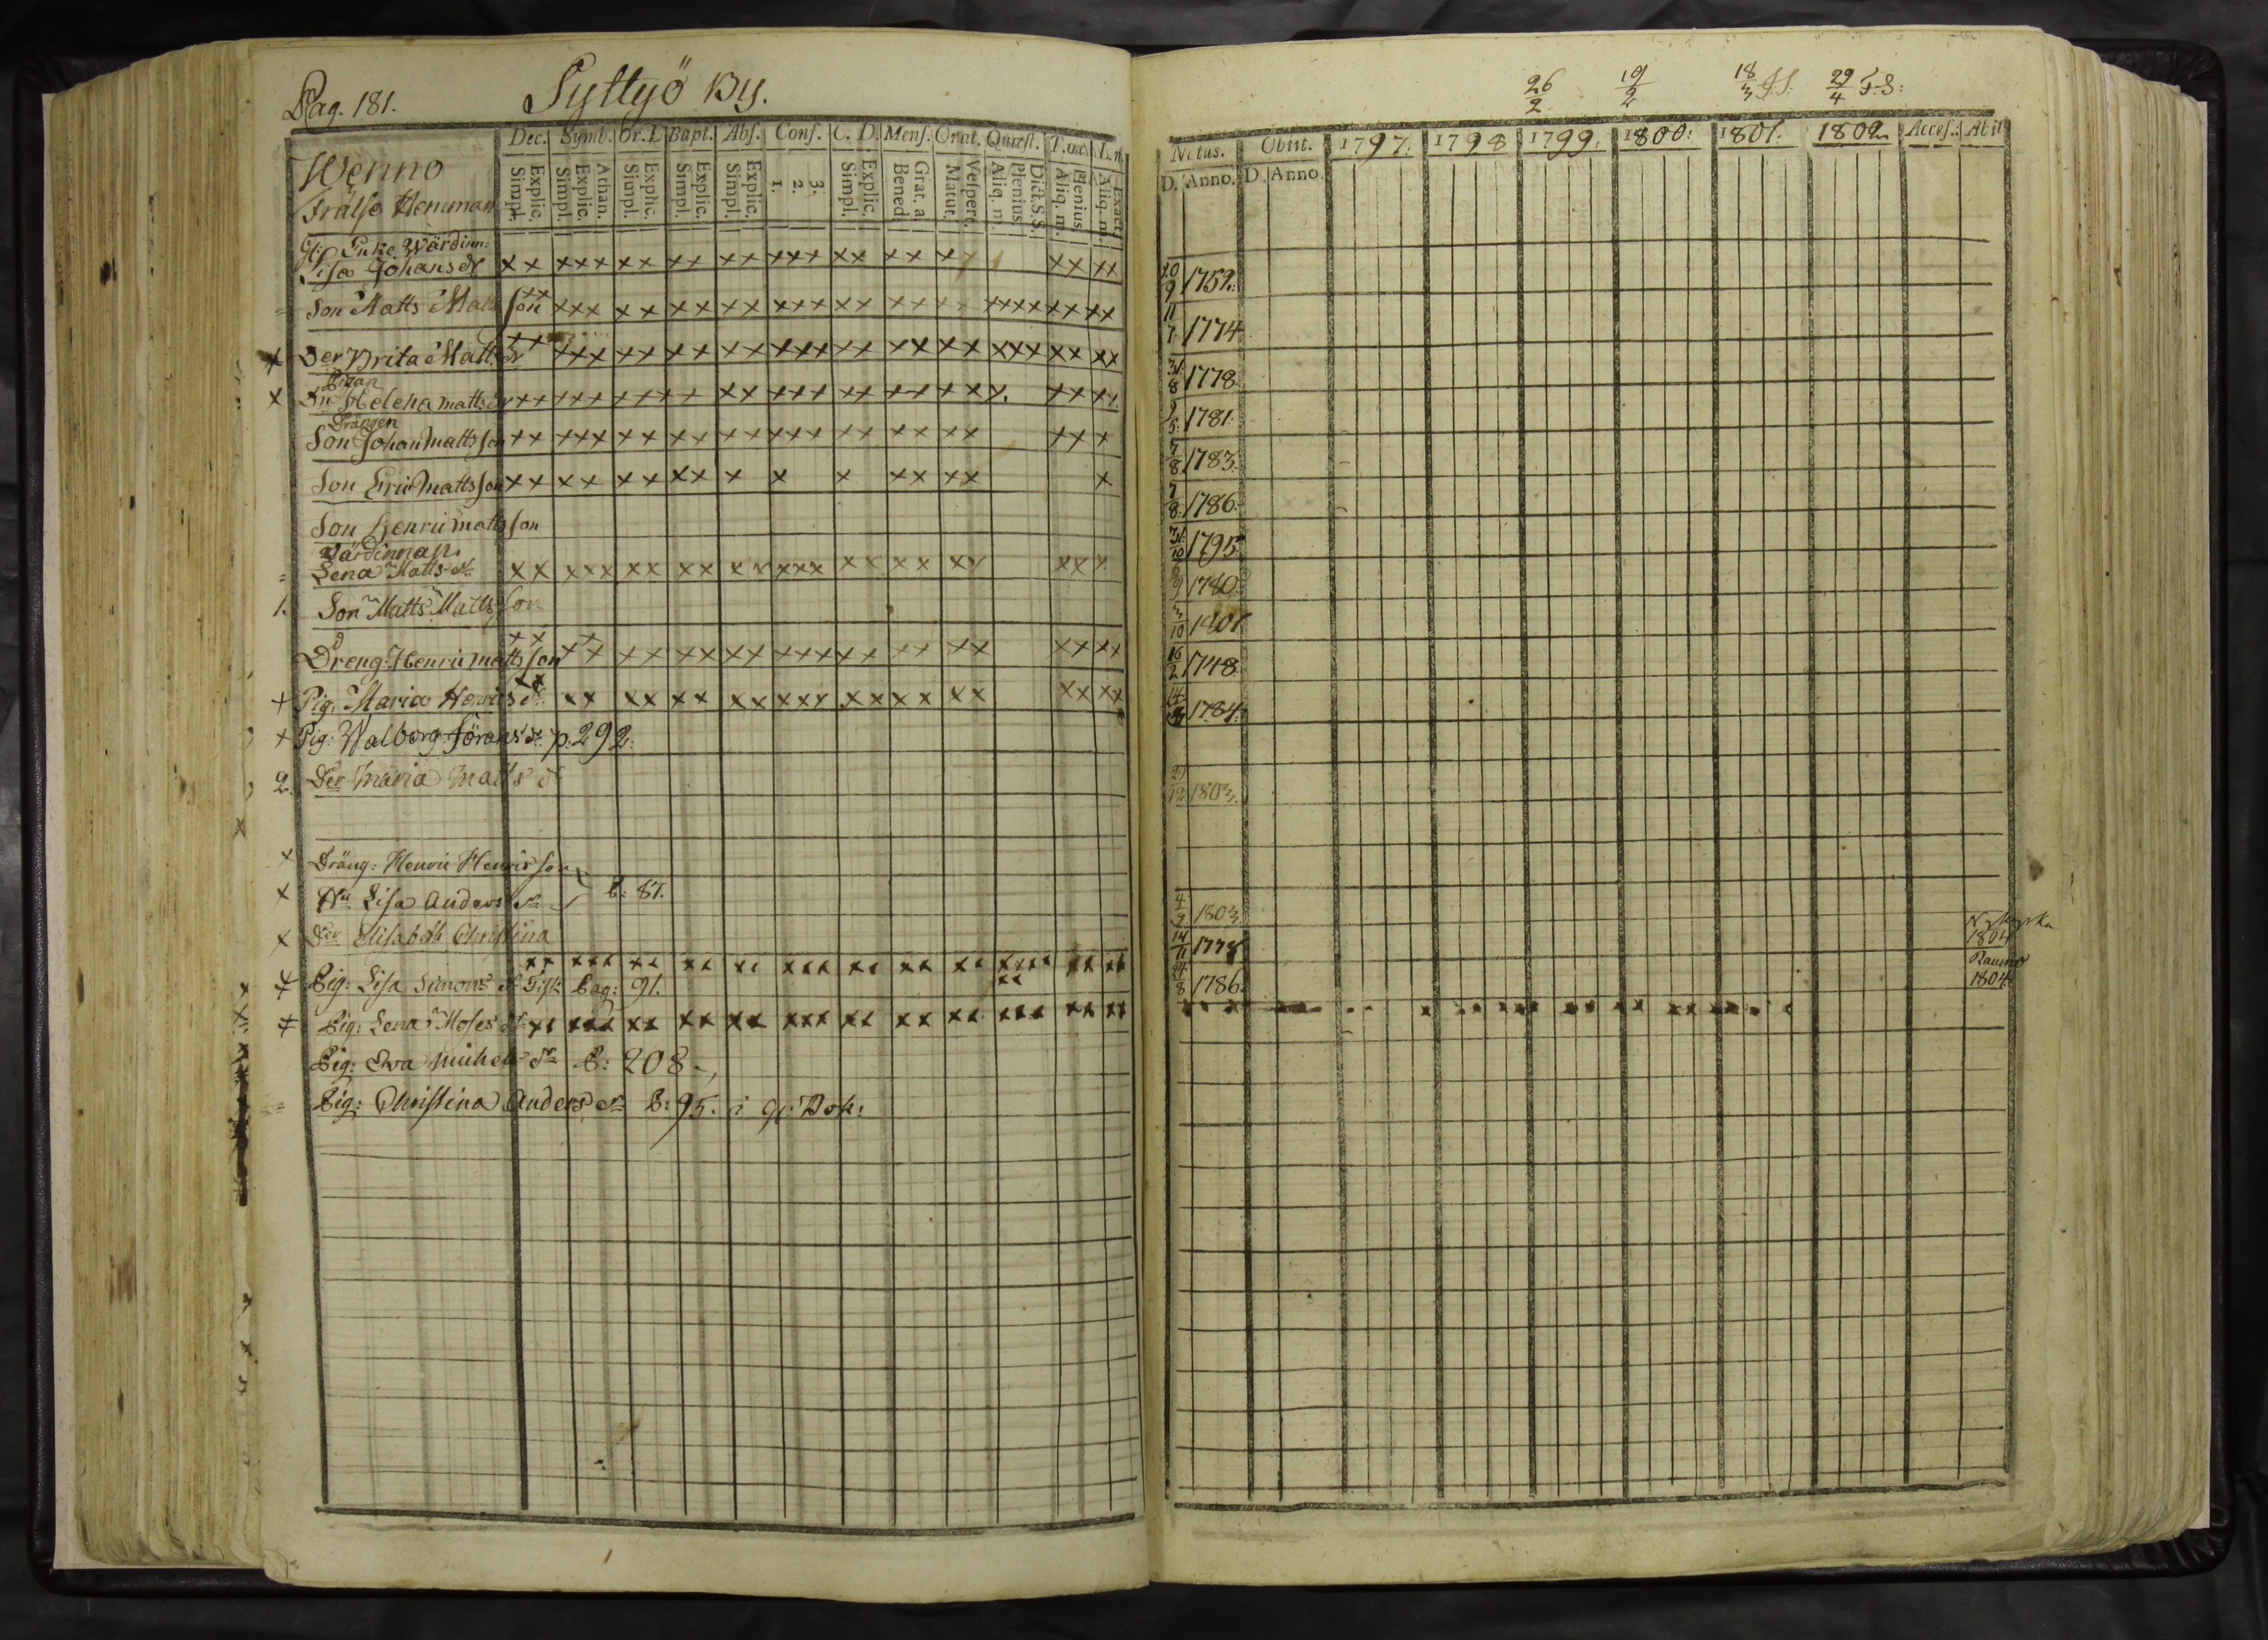 Pag. 181. Syttyö By.
Dec. Symb. Or. D Bapt. Abs. Conf. C. D. Mens. Orat. Quæst. T. oec. L. n.
Explic. Simpl. Athan. Explic. Simpl. Explic. Simpl. Explic. Simpl. Explic. Simpl. 3. 2. 1. Explic. Simpl. Grat. a. Bened. Vespert. Matut. Dict. S. S. Plenius Aliq. m. Plenius Aliq. m. Exact. Aliq. m.
Wenno
Frälse Hemman
Enke Wärdinn:
Lisa Johans dr
Son Matts Matts son
Der Brita Matts dr
Pigan
Helena matts dr
Drängen
Son Johan Matts son
Son Eric Matts son
Son Henric matts son
Värdinnan
Lena Matts dr
1. Son Matts Matts son
Dreng: Henric matts son
Pig. Maria Henrics dr
Pig: Walborg Jörans dr p. 292.
2. Der Maria Matts dr
Dräng: Henric Henrics son
Hu Lisa Anders dr P: 87.
Der Elisabeth Christina
Pig: Lisa Simons dr Pag: 91.
Pig: Lena Moses dr
Pig: Ewa Michels dr P: 208
Pig: Christina Anders dr P: 95. i
26/2 19/2 18/3 29/4
Natus. Obiit. 1797. 1798 1799. 1800: 1801. 1802 Acces. Abiit
D. Anno. D. Anno.
1752.
11/7 1774
31/8 1778
1781.
7/8 1783.
7/8 1786.
31/10 1795
1780
3/10 1801
16/2 1748
1784.
1803.
4/9 1803. Nykyrka
14/11 1778 1804
24/8 1786. Raumo
1804.